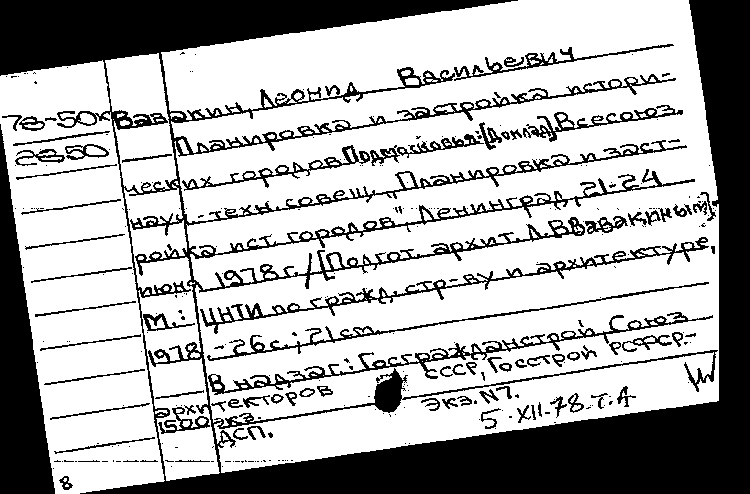 78-50к Вавакин, Леонид Васильевич
2850 Планировка и застройка истори-
ческих городов Подмосковья: [Доклад]. Всесоюз.
науч.-техн. совещ. „Планировка и заст-
ройка ист. городов", Ленинград, 21-24
июня 1978 г. / [Подгот. архит. Л.В. Вавакиным].-
М.: ЦНТИ по гражд. стр-ву и архитектуре,
1978. - 26 с.; 21 cm.
В надзаг.: Госгражданстрой, Союз
архитекторов СССР, Госстрой РСФСР.-
1500 экз. Экз. N7.
ДСП. 5.XII.78. т. А
8